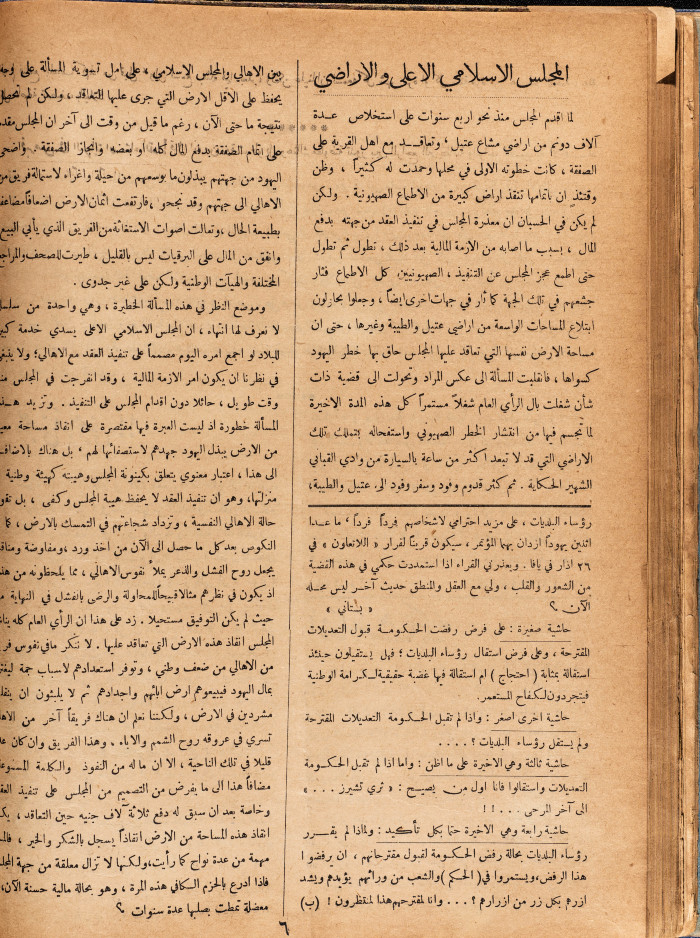 المجلس الاسلامي الاعلى والاراضي
لما اقدم المجلس منذ نحو اربع سنوات على استخلاص عدة
آلاف دونم من اراضي مشاع عتيل ، وتعاقد مع اهل القرية على
الصفقة ، كانت خطوته الاولى في محلها وحمدت له كثيراً ، وظن
وقتئذ ان باتمامها تنقذ اراض كبيرة من الاطماع الصهيونية . ولكن
لم يكن في الحسبان ان معذرة المجلس في تنفيذ العقد من جهته بدفع
المال ، بسبب ما اصابه من الازمة المالية بعد ذلك ، تطول ثم تطول
حتى اطمع عجز المجلس عن التنفيذ ، الصهيونيين كل الاطماع فثار
جشعهم في تلك الجهة كما ثار في جهات اخرى ايضاً ، وجعلوا يحاولون
ابتلاع المساحات الواسعة من اراضي عتيل والطيبة وغيرها ، حتى ان
مساحة الارض نفسها التي تعاقد عليها المجلس حاق بها خطر اليهود
كسواها ، فانقلبت المسألة الى عكس المراد وتحولت الى قضية ذات
شأن شغلت بال الرأي العام شغلاً مستمراً كل هذه المدة الاخيرة
لما تجسم فيها من انتشار الخطر الصهيوني واستفحاله بتملك تلك
الاراضي التي قد لا تبعد اكثر من ساعة بالسيارة من وادي القباني
الشهير الحكاية . ثم كثر قدوم وفود وسفر وفود الى عتيل والطيبة ،
رؤساء البلديات ، على مزيد احترامي لاشخاصهم فرداً فرداً ، ما عدا
اثنين يهوداً ازدان بهما المؤتمر ، سيكون قريناً لقرار « اللاتعاون » في
٢٦ اذار في يافا . ويعذرني القراء اذا استمددت حكمي في هذه القضية
من الشعور والقلب ، ولي مع العقل والمنطق حديث آخر ليس محله
الآن ؟ « بستاني »
حاشية صغيرة : على فرض رفضت الحكومة قبول التعديلات
المقترحة ، وعلى فرض استقال رؤساء البلديات ؛ فهل يستقيلون حينئذ
استقالة بمثابة ( احتجاج ) ام استقالة فيها غضبة حقيقية للكرامة الوطنية
فيتجردون لكفاح المستعمر.
حاشية اخرى اصغر : واذا لم تقبل الحكومة التعديلات المقترحة
ولم يستقل رؤساء البلديات ؟ . . . .
حاشية ثالثة وهي الاخيرة على ما اظن : واما اذا لم تقبل الحكومة
التعديلات واستقالوا فانا اول من يصيح : « ثري تشيرز . . . »
الى آخر المرحى . . . ! !
حاشية رابعة وهي الاخيرة حتما بكل تأكيد : ولماذا لم يقرر
رؤساء البلديات بحالة رفض الحكومة لقبول مقترحاتهم ، ان يرفضوا
هذا الرفض ، ويستمروا في ( الحكم ) والشعب من ورائهم يؤيدهم ويشد
ازرهم بكل زر من ازرارهم ؟ . . . وانا لمقترحهم هذا لمنتظرون ! (ب)
بين الاهالي والمجلس الاسلامي ، على امل تسوية المسألة على وجه
يحفظ على الاقل الارض التي جرى عليها التعاقد ، ولكن لم تحصل
نتيجة ما حتى الآن ، رغم ما قيل من وقت الى آخر ان المجلس مقدم
على اتمام الصفقة بدفع المال كله او بعضه وانجاز الصفقة . واضحى
اليهود من جهتهم يبذلون ما بوسعهم من حيلة واغراء لاستمالة فريق من
الاهالي الى جهتهم وقد نجحوا ، فارتفعت اثمان الارض اضعافاً مضاعفة
بطبيعة الحال ، وتعالت اصوات الاستغاثة من الفريق الذي يأبى البيع
وانفق من المال على البرقيات ليس بالقليل ، طيرت للصحف والمراجع
المختلفة والهيآت الوطنية ولكن على غير جدوى .
وموضع النظر في هذه المسألة الخطيرة ، وهي واحدة من سلسلة
لا نعرف لها انتهاء ، ان المجلس الاسلامي الاعلى يسدي خدمة كبيرة
للبلاد لو اجمع امره اليوم مصمماً على تنفيذ العقد مع الاهالي ؛ ولا ينبغي
في نظرنا ان يكون امر الازمة المالية ، وقد انفرجت في المجلس منذ
وقت طويل ، حائلا دون اقدام المجلس على التنفيذ . وتزيد هذه
المسألة خطورة اذ ليست العبرة فيها مقتصرة على انقاذ مساحة معينة
من الارض يبذل اليهود جهدهم لاستصفائها لهم ، بل هناك بالاضافة
الى هذا ، اعتبار معنوي يتعلق بكينونة المجلس وهيبته كهيئة وطنية لها
منزلتها ، وهو ان تنفيذ العقد لا يحفظ هيبة المجلس وكفى ، بل تقوى
حالة الاهالي النفسية ، وتزداد شجاعتهم في التمسك بالارض ، كما ان
النكوص بعد كل ما حصل الى الآن من اخذ ورد ، ومفاوضة ومناقشة
يجعل روح الفشل والذعر يملأ نفوس الاهالي ، مما يلحظونه من هذا
اذ يكون في نظرهم مثالاً قبيحاً للمحاولة والرضى بالفشل في النهاية من
حيث لم يكن التوفيق مستحيلا . زد على هذا ان الرأي العام كله يناشد
المجلس انقاذ هذه الارض التي تعاقد عليها . لا ننكر ما في نفوس فريق
من الاهالي من ضعف وطني ، وتوفر استعدادهم لاسباب جمة ليغتروا
بمال اليهود فيبيعوهم ارض ابائهم واجدادهم ثم لا يلبثون ان ينقلبوا
مشردين في الارض ، ولكننا نعلم ان هناك فريقاً آخر من الاهالي
تسري في عروقه روح الشمم والاباء ، وهذا الفريق وان كان عدده
قليلا في تلك الناحية ، الا ان ما له من النفوذ والكلمة المسموعة
مضافاً هذا الى ما يفرض من التصميم من المجلس على تنفيذ العقد
وخاصة بعد ان سبق له دفع ثلاثة آلاف جنيه حين التعاقد ، يكون
انقاذ هذه المساحة من الارض انقاذاً يسجل بالشكر والخير ،
مهمة من عدة نواح كما رأيت ، ولكنها لا تزال معلقة من جهة المجلس
فاذا ادرع بالحزم الكافي هذه المرة ، وهو بحالة مالية حسنة الآن ،
معضلة تمطت بصلبها عدة سنوات ؟
٦